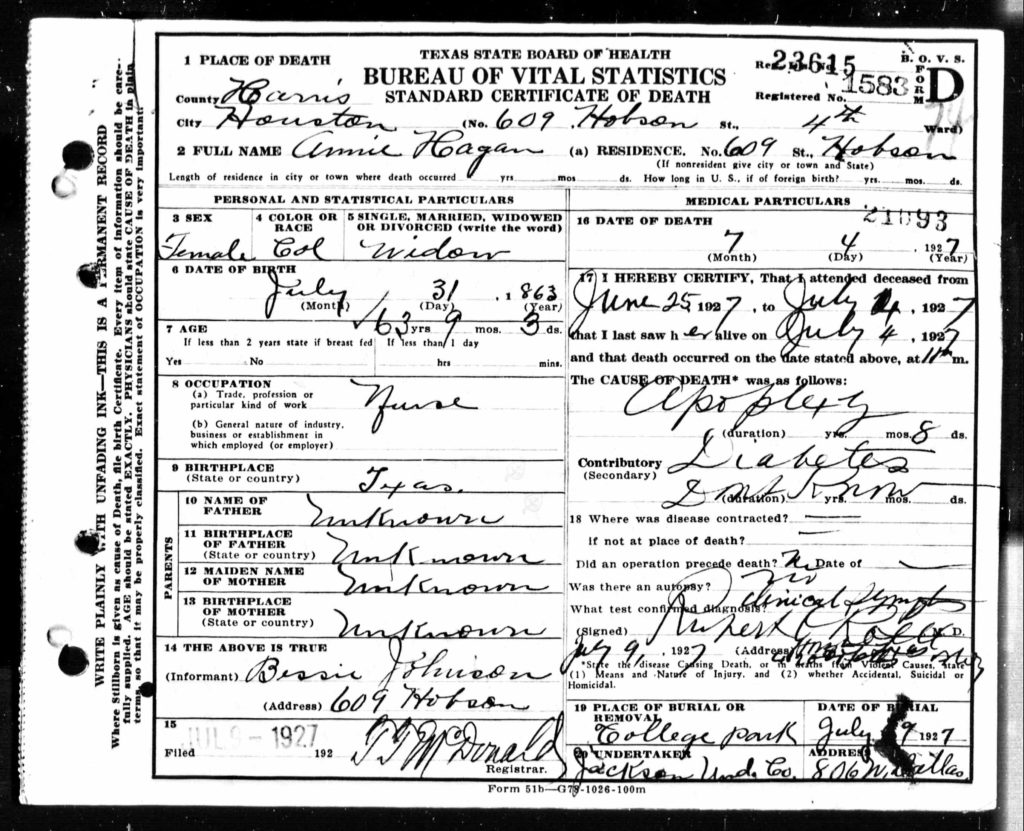 TEXAS STATE BOARD OF HEALTH
BUREAU OF VITAL STATISTICS
STANDARD CERTIFICATE OF DEATH
23615
B. O. V. S.
FORM D
Registered No. 1583
1 PLACE OF DEATH
County Harris
City Houston (No. 609 Hobson St., 4th Ward)
2 FULL NAME Annie Hagan (a) RESIDENCE. No. 609 St., Hobson
(If nonresident give city or town and State)
Length of residence in city or town where death occurred yrs. mos ds. How long in U. S., if of foreign birth? yrs. mos. ds.
WRITE PLAINLY WITH UNFADING INK—THIS IS A PERMANENT RECORD
Where Stillborn is given as cause of Death, file birth Certificate. Every item of information should be care-
fully supplied. AGE should be stated EXACTLY. PHYSICIANS should state CAUSE OF DEATH in plain
terms, so that it may be properly classified. Exact statement of OCCUPATION is very important.
PERSONAL AND STATISTICAL PARTICULARS
3 SEX Female
4 COLOR OR RACE Col
5 SINGLE, MARRIED, WIDOWED
OR DIVORCED (write the word)
Widow
6 DATE OF BIRTH
July 31, 1863
(Month) (Day) (Year)
7 AGE 63 yrs 9 mos. 3 ds.
If less than 2 years state if breast fed If less than 1 day
Yes No hrs mins.
8 OCCUPATION
(a) Trade, profession or
particular kind of work Nurse
(b) General nature of industry,
business or establishment in
which employed (or employer)
9 BIRTHPLACE
(State or country) Texas.
PARENTS
10 NAME OF
FATHER Unknown
11 BIRTHPLACE
OF FATHER
(State or country) Unknown
12 MAIDEN NAME
OF MOTHER Unknown
13 BIRTHPLACE
OF MOTHER
(State or country) Unknown
14 THE ABOVE IS TRUE
(Informant) Bessie Johnson
(Address) 609 Hobson
15
Filed JUL 9 - 1927 192
McDonald
Registrar.
MEDICAL PARTICULARS
21093
16 DATE OF DEATH
7 4, 1927
(Month) (Day) (Year)
17 I HEREBY CERTIFY, That I attended deceased from
June 25, 1927, to July 4, 1927
that I last saw her alive on July 4, 1927
and that death occurred on the date stated above, at 11 m.
The CAUSE OF DEATH* was as follows:
Apoplexy
(duration) yrs. mos. 8 ds.
Contributory Diabetes
(Secondary)
Dont Know
(duration) yrs. mos. ds.
18 Where was disease contracted? —
if not at place of death?
Did an operation precede death? No Date of —
Was there an autopsy? no
What test confirmed diagnosis? Clinical
(Signed) Rupert M. D.
July 9, 1927 (Address)
*State the disease Causing Death, or in deaths from Violent Causes, state
(1) Means and Nature of Injury, and (2) whether Accidental, Suicidal or
Homicidal.
19 PLACE OF BURIAL OR
REMOVAL
College park
DATE OF BURIAL
July 9 1927
20 UNDERTAKER
Jackson Und. Co.
ADDRESS
806 W. Dallas
Form 51b—G78-1026-100m